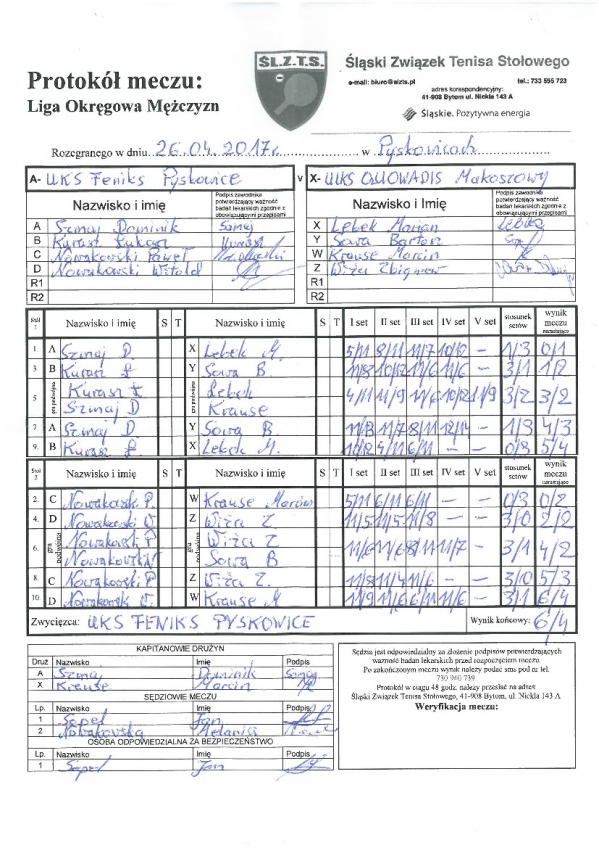 ŚL.Z.T.S.
Śląski Związek Tenisa Stołowego
e-mail: biuro@slzts.pl tel.: 733 555 723
adres korespondencyjny:
41-908 Bytom ul. Nickla 143 A
Śląskie. Pozytywna energia
Protokół meczu:
Liga Okręgowa Mężczyzn
Rozegranego w dniu 26.04.2017r. w Pyskowicach
A- UKS Feniks Pyskowice v X- UKS QUOVADIS Makoszowy
Nazwisko i imię Podpis zawodnika potwierdzający ważność badań lekarskich zgodnie z obowiązującymi przepisami Nazwisko i imię Podpis zawodnika potwierdzający ważność badań lekarskich zgodnie z obowiązującymi przepisami
A Szmaj Dominik Szmaj X Lebek Marian
B Kurasz Łukasz Y Sowa Bartosz
C Nowakowski Paweł W Krause Marcin
D Nowakowski Witold Z Wiża Zbigniew
R1 R1
R2 R2
Stół 1 Nazwisko i imię S T Nazwisko i imię S T I set II set III set IV set V set stosunek setów wynik meczu narastająco
1. A Szmaj D. X Lebek M. 5/11 8/11 11/7 10/12 - 1/3 0/1
3. B Kurasz Ł Y Sowa B 11/8 10/12 11/6 11/6 - 3/1 1/2
5 gra podwójna Kurasz Ł Lebek 4/11 11/9 11/6 10/12 11/9 3/2 3/2
Szmaj D Krause
7. A Szmaj D Y Sowa B 11/13 11/7 8/11 12/14 - 1/3 4/3
9. B Kurasz Ł X Lebek M. 10/12 4/11 6/11 - - 0/3 5/4
Stół 2 Nazwisko i imię S T Nazwisko i imię S T I set II set III set IV set V set stosunek setów wynik meczu narastająco
2. C Nowakowski P. W Krause Marcin 5/11 6/11 6/11 - - 0/3 0/2
4. D Nowakowski W. Z Wiża Z. 11/5 11/5 11/8 - - 3/0 2/2
6. gra podwójna Nowakowski P Wiża Z 11/6 11/6 8/11 11/7 - 3/1 4/2
Nowakowski W Sowa B
8. C Nowakowski P Z Wiża Z. 11/8 11/4 11/6 - - 3/0 5/3
10. D Nowakowski W. W Krause M 11/9 11/6 6/11 11/6 - 3/1 6/4
Zwycięzca: UKS FENIKS PYSKOWICE Wynik końcowy: 6/4
KAPITANOWIE DRUŻYN
Druż Nazwisko Imię Podpis
A Szmaj Dominik Szmaj
X Krause Marcin
SĘDZIOWIE MECZU
Lp. Nazwisko Imię Podpis
1 Sapel Jan
2 Nowakowska Melania
OSOBA ODPOWIEDZIALNA ZA BEZPIECZEŃSTWO
Lp. Nazwisko Imię Podpis
1 Sapel Jan
Sędzia jest odpowiedzialny za złożenie podpisów potwierdzających
ważność badań lekarskich przed rozpoczęciem meczu.
Po zakończonym meczu wynik należy podać sms pod nr tel.
730 940 739
Protokół w ciągu 48 godz. należy przesłać na adres:
Śląski Związek Tenisa Stołowego, 41-908 Bytom, ul. Nickla 143 A
Weryfikacja meczu: